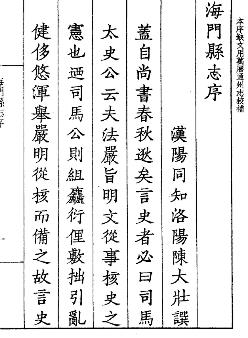 本序缺文用萬曆通州志校補
海門縣志序
漢陽同知洛陽陳大壯譔
蓋自尚書春秋逖矣言史者必曰司馬
太史公云夫法嚴旨明文從事核史之
憲也迺司馬公則組衍俚敷拙引亂
健侈悠渾舉嚴明從核而備之故言史